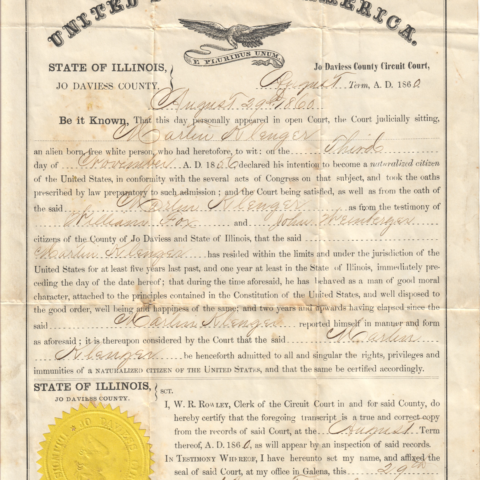 UNITED S AMERICA.
E PLURIBUS UNUM
STATE OF ILLINOIS, Jo Daviess County Circuit Court,
JO DAVIESS COUNTY. August Term, A. D. 1860.
August 29th 1860
Be it Known, That this day personally appeared in open Court, the Court judicially sitting,
Martin Klenger
an alien born, free white person, who had heretofore, to wit: on the Third
day of November A. D. 1856 declared his intention to become a naturalized citizen
of the United States, in conformity with the several acts of Congress on that subject, and took the oaths
prescribed by law preparatory to such admission; and the Court being satisfied, as well as from the oath of
the said Martin Klenger as from the testimony of
William Fox and John Weinberger
citizens of the County of Jo Daviess and State of Illinois, that the said
Martin Klenger has resided within the limits and under the jurisdiction of the
United States for at least five years last past, and one year at least in the State of Illinois, immediately prece-
ding the day of the date hereof; that during the time aforesaid, he has behaved as a man of good moral
character, attached to the principles contained in the Constitution of the United States, and well disposed to
the good order, well being and happiness of the same; and two years and upwards having elapsed since the
said Martin Klenger reported himself in manner and form
as aforesaid; it is thereupon considered by the Court that the said Martin
Klenger be henceforth admitted to all and singular the rights, privileges and
immunities of a NATURALIZED CITIZEN OF THE UNITED STATES, and that the same be certified accordingly.
STATE OF ILLINOIS,
JO DAVIESS COUNTY. SCT.
I, W. R. ROWLEY, Clerk of the Circuit Court in and for said County, do
hereby certify that the foregoing transcript is a true and correct copy
from the records of said Court, at the August Term
thereof, A. D. 1860, as will appear by an inspection of said records.
IN TESTIMONY WHEREOF, I have hereunto set my name, and affixed the
seal of said Court, at my office in Galena, this 29th